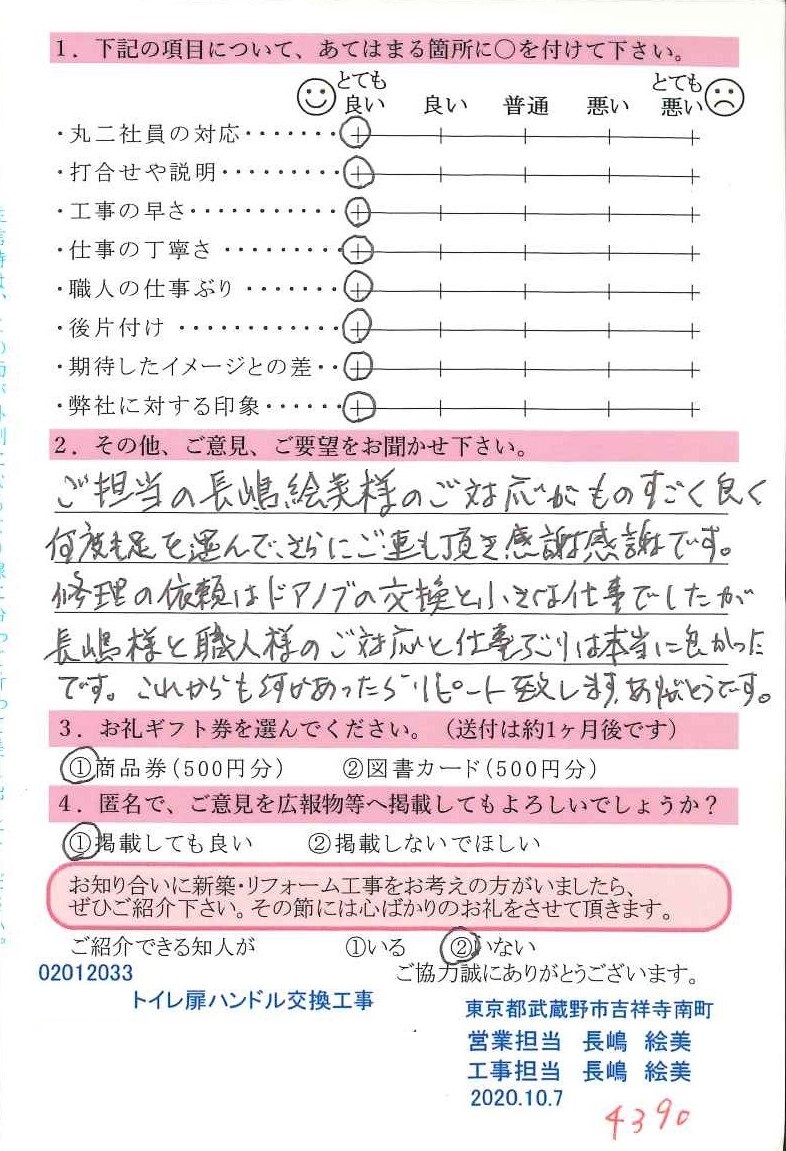 1．下記の項目について、あてはまる箇所に○を付けて下さい。
とても良い 良い 普通 悪い とても悪い
・丸二社員の対応・・・・・・・
・打合せや説明・・・・・・・・・
・工事の早さ・・・・・・・・・・・
・仕事の丁寧さ・・・・・・・・・
・職人の仕事ぶり・・・・・・・
・後片付け・・・・・・・・・・・・
・期待したイメージとの差・・
・弊社に対する印象・・・・・・
2．その他、ご意見、ご要望をお聞かせ下さい。
ご担当の長嶋絵美様のご対応がものすごく良く
何度も足を運んで、さらにご連も頂き感謝感謝です。
修理の依頼はドアノブの交換と小さな仕事でしたが
長嶋様と職人様のご対応と仕事ぶりは本当に良かった
です。これからも何かあったらリピート致します、ありがとうです。
3．お礼ギフト券を選んでください。（送付は約1ヶ月後です）
①商品券（500円分） ②図書カード（500円分）
4．匿名で、ご意見を広報物等へ掲載してもよろしいでしょうか？
①掲載しても良い ②掲載しないでほしい
お知り合いに新築・リフォーム工事をお考えの方がいましたら、
ぜひご紹介下さい。その節には心ばかりのお礼をさせて頂きます。
ご紹介できる知人が ①いる ②いない
02012033
ご協力誠にありがとうございます。
トイレ扉ハンドル交換工事
東京都武蔵野市吉祥寺南町
営業担当 長嶋 絵美
工事担当 長嶋 絵美
2020.10.7
4390